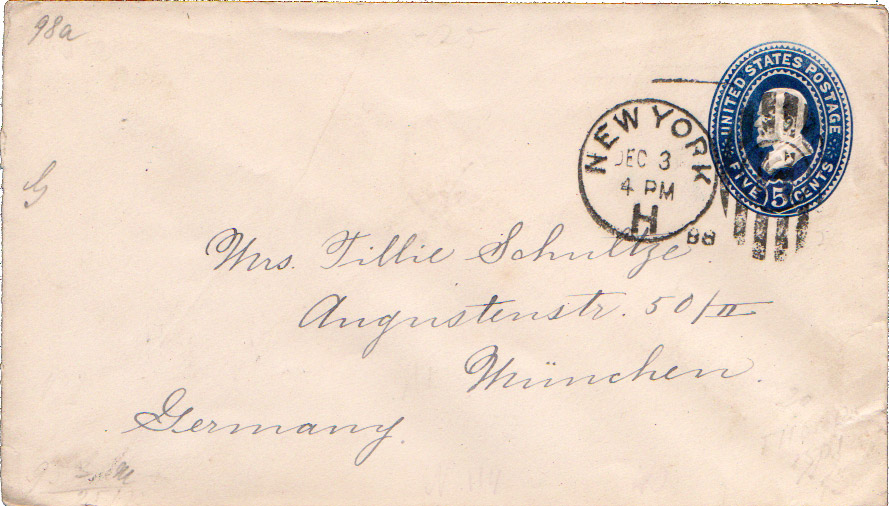 98a
UNITED STATES POSTAGE
FIVE 5 CENTS
NEW YORK
DEC 3
4 PM
H
88
Mrs. Tillie Schultze
Augustenstr. 50/II
München.
Germany.